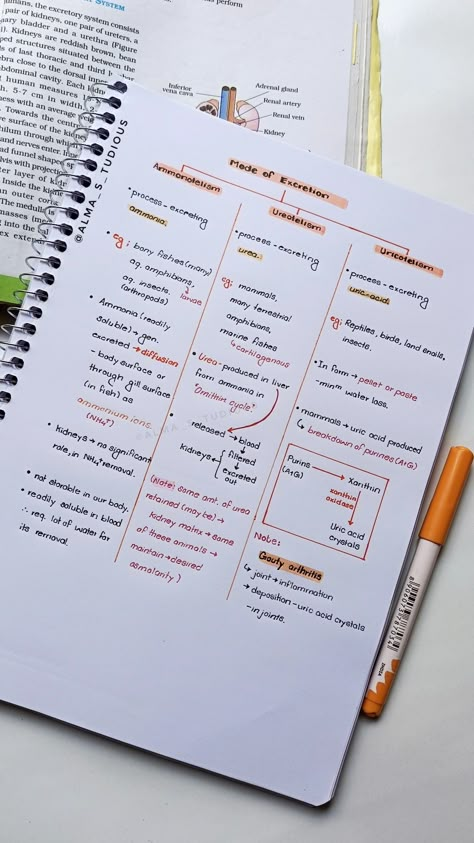 SYSTEM
perform
humans, the excretory system consists
pair of kidneys, one pair of ureters, a
ary bladder and a urethra (Figure
). Kidneys are reddish brown, bean
ped structures situated between the
s of last thoracic and third
bra close to the dorsal inner
bdominal cavity. Each
human measures
h, 5-7 cm in width, 2
ness with an average
Towards the centre
e surface of the kidney
hilum through which
and nerves enter.
funnel shaped
lvis with projection
er layer of
Inside the
an outer
The medulla is
masses
ing into the
ex extend
Adrenal gland
Inferior
vena cava
Renal artery
Renal vein
Kidney
@ALMA_S_TUDIOUS
Mode of Excretion
Ammonotelism
•process - excreting
ammonia.
• eg: bony fishes (many)
aq. amphibians,
aq. insects.
↳ larvae
(arthropods)
• Ammonia (readily
soluble) → gen.
excreted → diffusion
- body surface or
through gill surface
(in fish) as
ammonium ions.
(NH₄⁺)
• kidneys → no significant
role, in NH₄⁺ removal.
• not storable in our body.
• readily soluble in blood
∴ req. lot of water for
its removal.
Ureotelism
• process - excreting
urea.
eg: mammals,
many terrestrial
amphibians,
marine fishes
↳ cartilagenous
• Urea - produced in liver
from ammonia in
"Ornithin cycle"
@ALMA_S_TUDIOUS
• released → blood
kidneys ← filtered
excreted
out
(Note: some amt. of urea
retained (maybe) →
kidney matrix → some
of these animals →
maintain → desired
osmolarity)
Uricotelism
• process - excreting
uric-acid.
eg: Reptiles, birds, land snails,
insects.
• In form → pellet or paste
- minᵐ water loss.
• mammals → uric acid produced
↳ breakdown of purines (A+G)
Purins → Xanthin
(A+G)
xanthin
oxidase
Uric acid
crystals
Note:
Gouty arthritis
↳ joint → inflammation
→ deposition - uric acid crystals
- in joints.